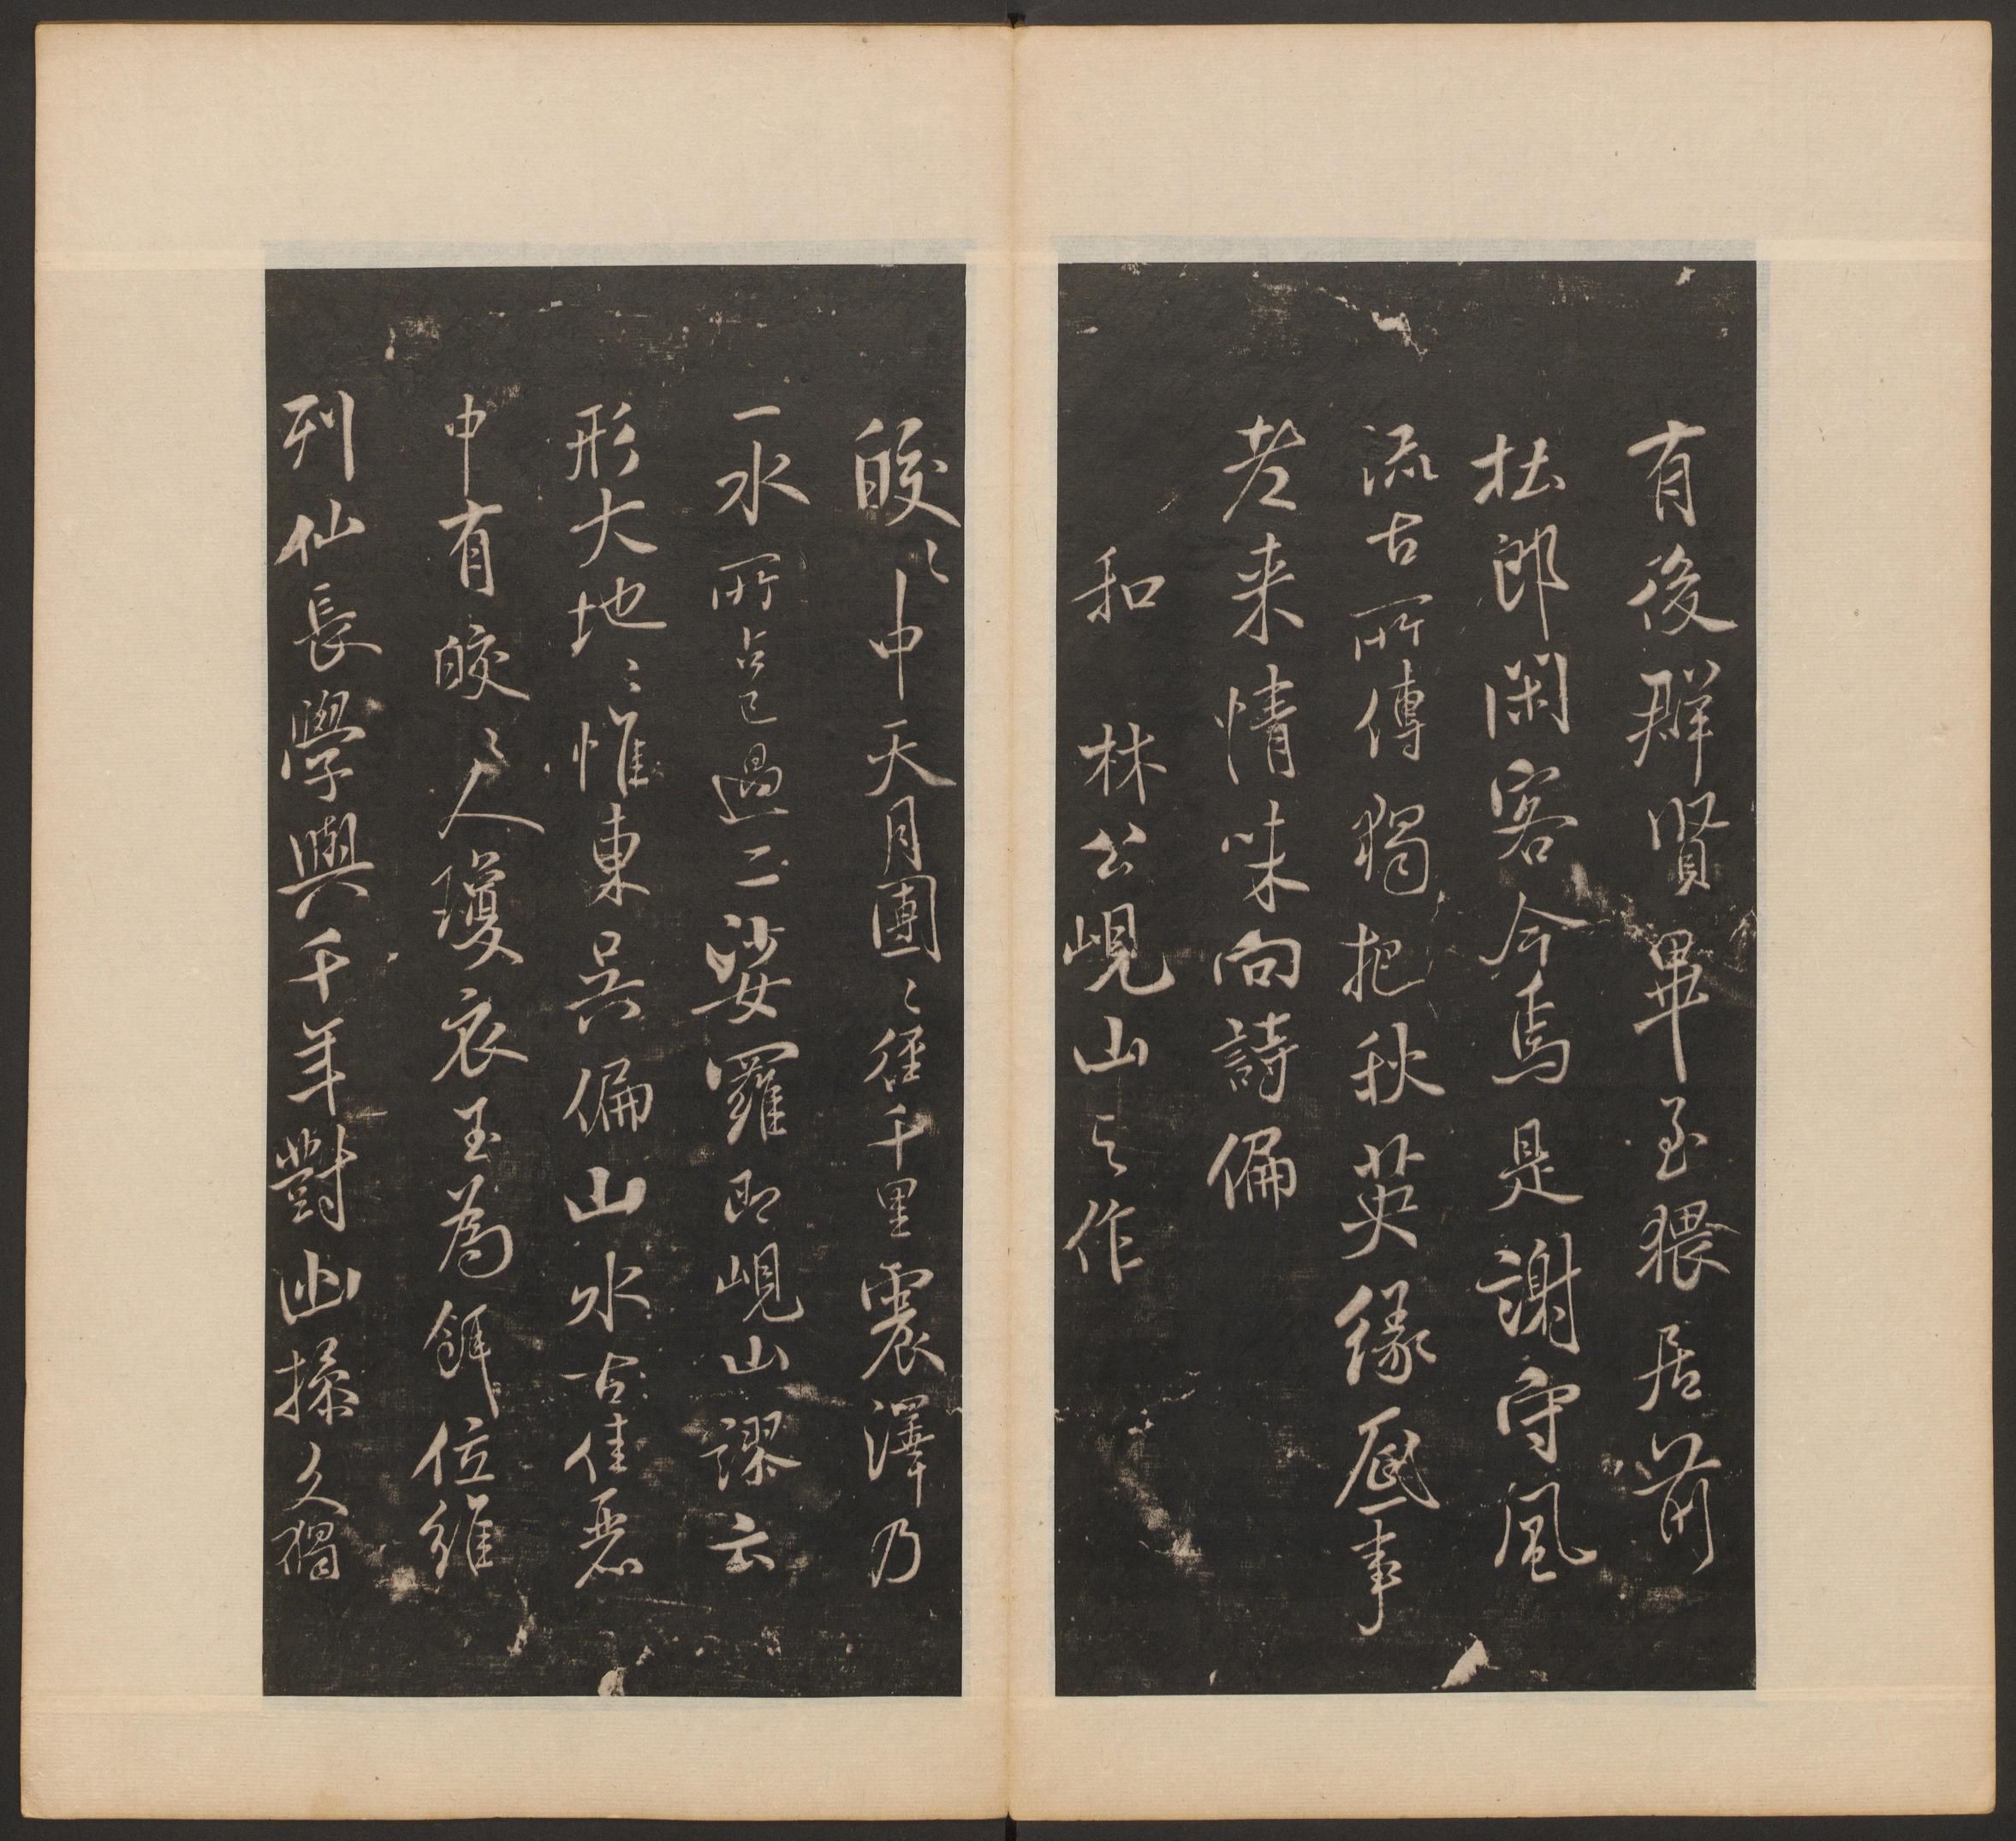 有後群賢畢至猥居前
杜郎閑客今焉是謝守風
流古所傳獨把秋英緣底事
老来情味向詩偏
和林公峴山之作
皎〻中天月團〻徑千里震澤乃
一水所占已過二娑羅即峴山謬云
形大地〻惟東吳偏山水古佳丽
中有皎〻人瓊衣玉為餌位維
列仙長學與千年對幽操久獨